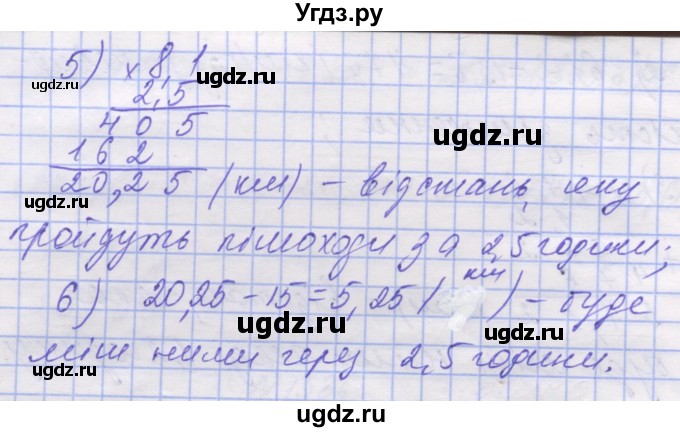 Угдз.ру
5) × 8,1
2,5
ugdz.ru
ugdz.ru
4 0 5
ugdz.ru
1 6 2
20,25 (км) – відстань, яку
ugdz.ru
пройдуть пішоходи за 2,5 години;
ugdz.ru
6) 20,25 – 15 = 5,25 (км) – буде
ugdz.ru
ugdz.ru
між ними через 2,5 години.
ugdz.ru
ugdz.ru